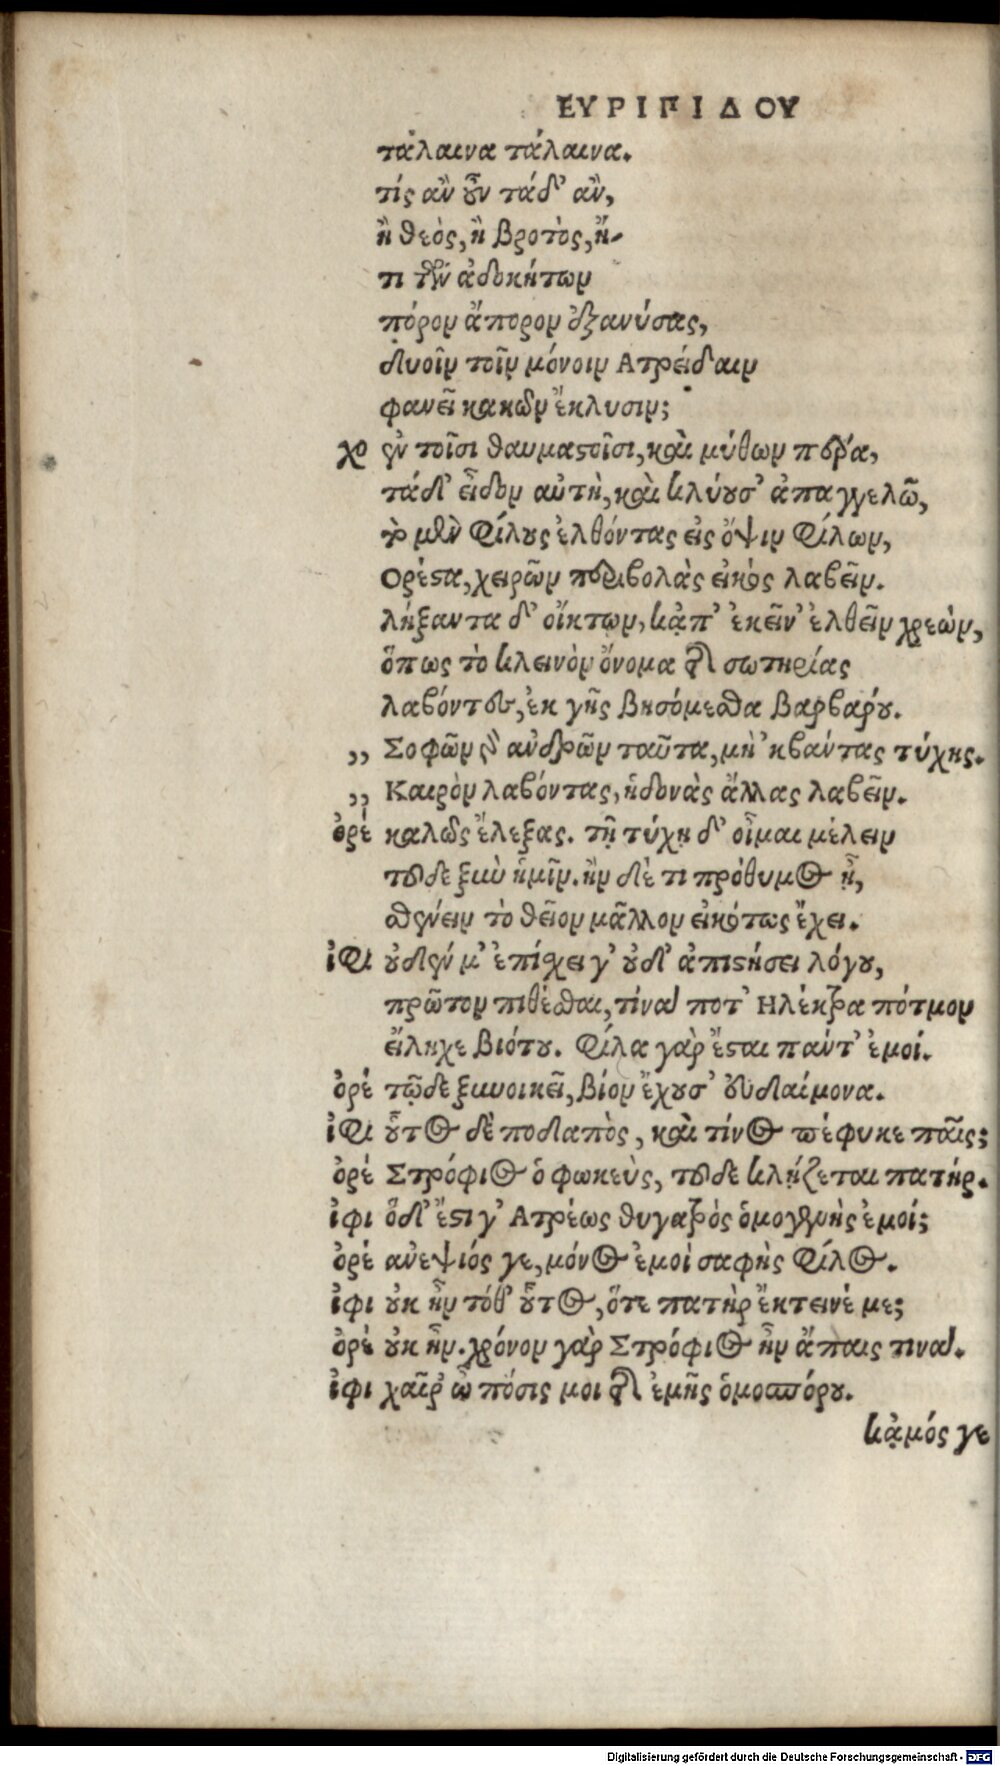 ΕΥΡΙΠΙΔΟΥ
τάλαινα τάλαινα.
τίς ἂν οὖν τάδ' ἂν,
ἢ θεὸς, ἢ βροτὸς, ἤ-
τι τῶν ἀδοκήτων
πόρον ἄπορον ἐξανύσας,
δυοῖν τοῖν μόνοιν Ατρείδαιν
φανεῖ κακῶν ἔκλυσιν;
χο ἐν τοῖσι θαυμαστοῖσι, καὶ μύθων πέρα,
τάδ' εἶδον αὐτὴ, καὶ κλύουσ' ἀπαγγελῶ,
τὸ μὲν φίλους ἐλθόντας εἰς ὄψιν φίλων,
Ορέστα, χειρῶν περιβολὰς εἰκὸς λαβεῖν.
λήξαντα δ' οἴκτων, κᾀπ' ἐκεῖν' ἐλθεῖν χρεὼν,
ὅπως τὸ κλεινὸν ὄνομα τῆς σωτηρίας
λαβόντες, ἐκ γῆς βησόμεσθα βαρβάρου.
,, Σοφῶν γὰρ ἀνδρῶν ταῦτα, μὴ 'κβάντας τύχης.
,, Καιρὸν λαβόντας, ἡδονὰς ἄλλας λαβεῖν.
ὀρέ καλῶς ἔλεξας. τῇ τύχῃ δ' οἶμαι μέλειν
τοῦδε ξυν ἡμῖν. ἢν δέ τι πρόθυμος ᾖ,
σθένειν τὸ θεῖον μᾶλλον εἰκότως ἔχει.
ἰφι οὐδέν μ' ἐπίσχει γ' οὐδ' ἀπιστήσει λόγου,
πρῶτον πιθέσθαι, τίνα ποτ' Ηλέκτρα πότμον
εἴληχε βιότου. φίλα γὰρ ἔσται πάντ' ἐμοί.
ὀρέ τῷδε ξυνοικεῖ, βίον ἔχουσ' εὐδαίμονα.
ἰφι οὗτος δὲ ποδαπὸς, καὶ τίνος πέφυκε παῖς;
ὀρέ Στρόφιος ὁ φωκεὺς, τοῦδε κλῄζεται πατήρ.
ἰφι ὅδ' ἔστι γ' Ατρέως θυγατρὸς ὁμογενὴς ἐμοί;
ὀρέ ἀνεψιός γε, μόνος ἐμοὶ σαφὴς φίλος.
ἰφι οὐκ ἦν τόθ' οὗτος, ὅτε πατὴρ ἔκτεινέ με;
ὀρέ οὐκ ἦν. χρόνον γὰρ Στρόφιος ἦν ἄπαις τινα.
ἰφι χαῖρ' ὦ πόσις μοι τῆς ἐμῆς ὁμοσπόρου.
κᾀμός γε
Digitalisierung gefördert durch die Deutsche Forschungsgemeinschaft - DFG